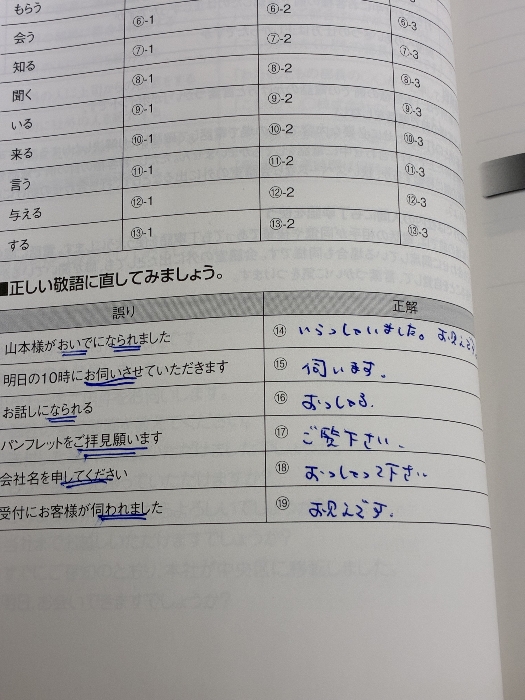 もらう ⑥-1 ⑥-2 ⑥-3
会う ⑦-1 ⑦-2 ⑦-3
知る ⑧-1 ⑧-2 ⑧-3
聞く ⑨-1 ⑨-2 ⑨-3
いる ⑩-1 ⑩-2 ⑩-3
来る ⑪-1 ⑪-2 ⑪-3
言う ⑫-1 ⑫-2 ⑫-3
与える ⑬-1 ⑬-2 ⑬-3
する
■正しい敬語に直してみましょう。
誤り 正解
山本様がおいでになられました ⑭ いらっしゃいました。 お見えで
明日の10時にお伺いさせていただきます ⑮ 伺います。
お話しになられる ⑯ おっしゃる.
パンフレットをご拝見願います ⑰ ご覧下さい.
会社名を申してください ⑱ おっしゃって下さい
受付にお客様が伺われました ⑲ お見えです.